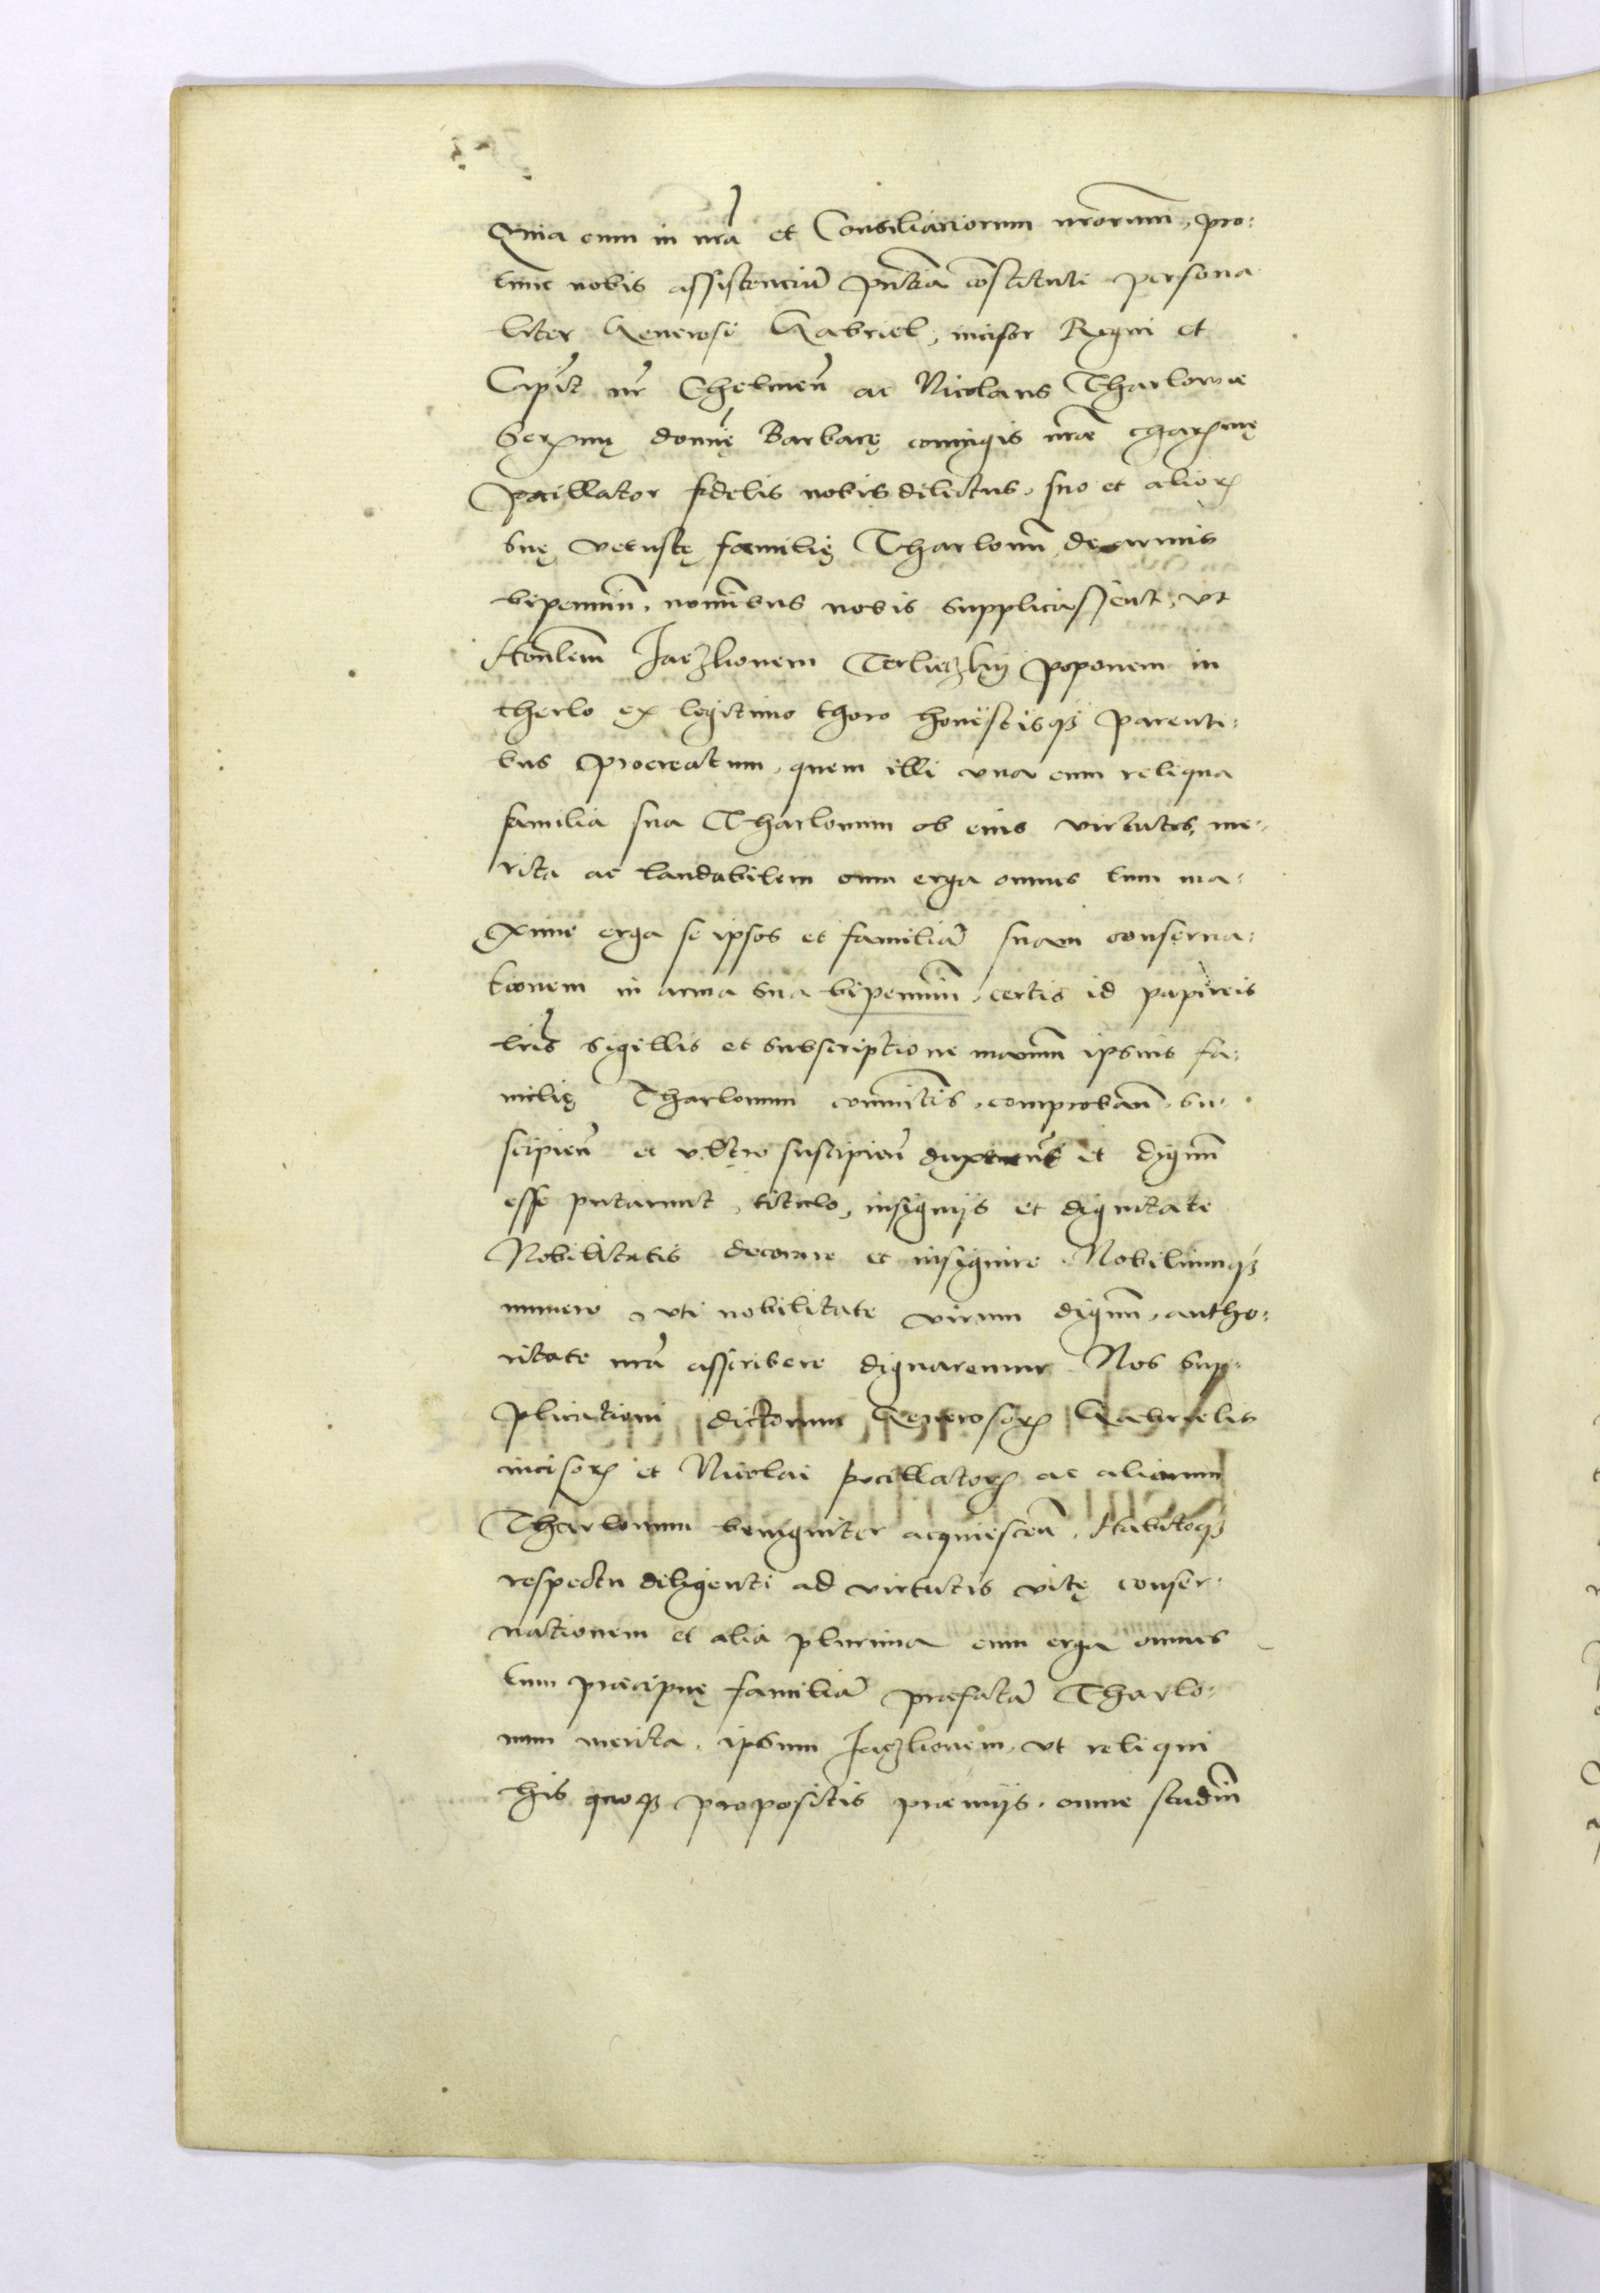 Quia cum in nra et Consiliariorum nrorum, pro:
tunc nobis assistenciu pntia costituti persona
liter Generosi Gabriel, incisor Regni et
Capit nr Chelmen ac Nicolaus Tharlowie
Serxmę domę Barbarę coniugis nrae charxmę
pocillator fidelis nobis dilectus, suo et aliorꝝ
suę vetustę familię Tharlonu de armis
bipennium, nominibus nobis supplicassent, vt
Honlem Jaczkonem Terlieczkij poponem in
therlo ex legitimo thoro honestisqȝ parenti:
bus procreatum, quem illi vna cum reliqua
familia sua Tharlonum ob eius virtutes, me:
rita ac laudabilem cum erga omnes tum ma:
xime erga se ipsos et familia suam conserua:
tionem in arma sua bipennium, certis id papireis
lris sigillis et subscriptione manuum ipsius fa:
milię Tharlonum comunitis, comproban, su:
scipien et vltro suscipien duxerunt et dignum
esse putarunt, titulo, insignijs et dignitate
Nobilitatis decorare et insignire Nobiliumqȝ
numero vti nobilitate virum dignum, autho:
ritate nra asscribere dignaremur. Nos sup:
plicationi dictorum Generosorꝝ Gabrielis
incisorꝝ et Nicolai pocillatorꝝ ac aliorum
Tharlonum benigniter acquiescen, Habitoqȝ
respectu diligenti ad virtutis vitę conser:
uationem et alia plurima cum erga omnes
tum praecipuę familia praefata Tharlo:
num merita, ipsum Jaczkonem, vt reliqui
his quoqȝ propositis praemijs, omne studium